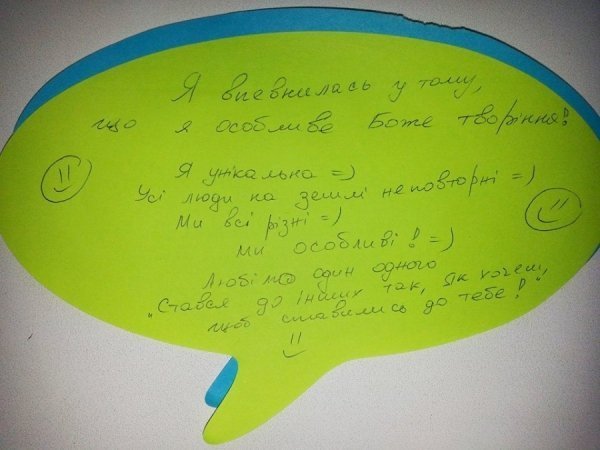 Я впевнилась у тому,
що я особливе Боже творіння!
Я унікальна =)
Усі люди на землі неповторні =)
Ми всі різні =)
Ми особливі! =)
Любімо один одного
"Стався до інших так, як хочеш,
щоб ставились до тебе!"